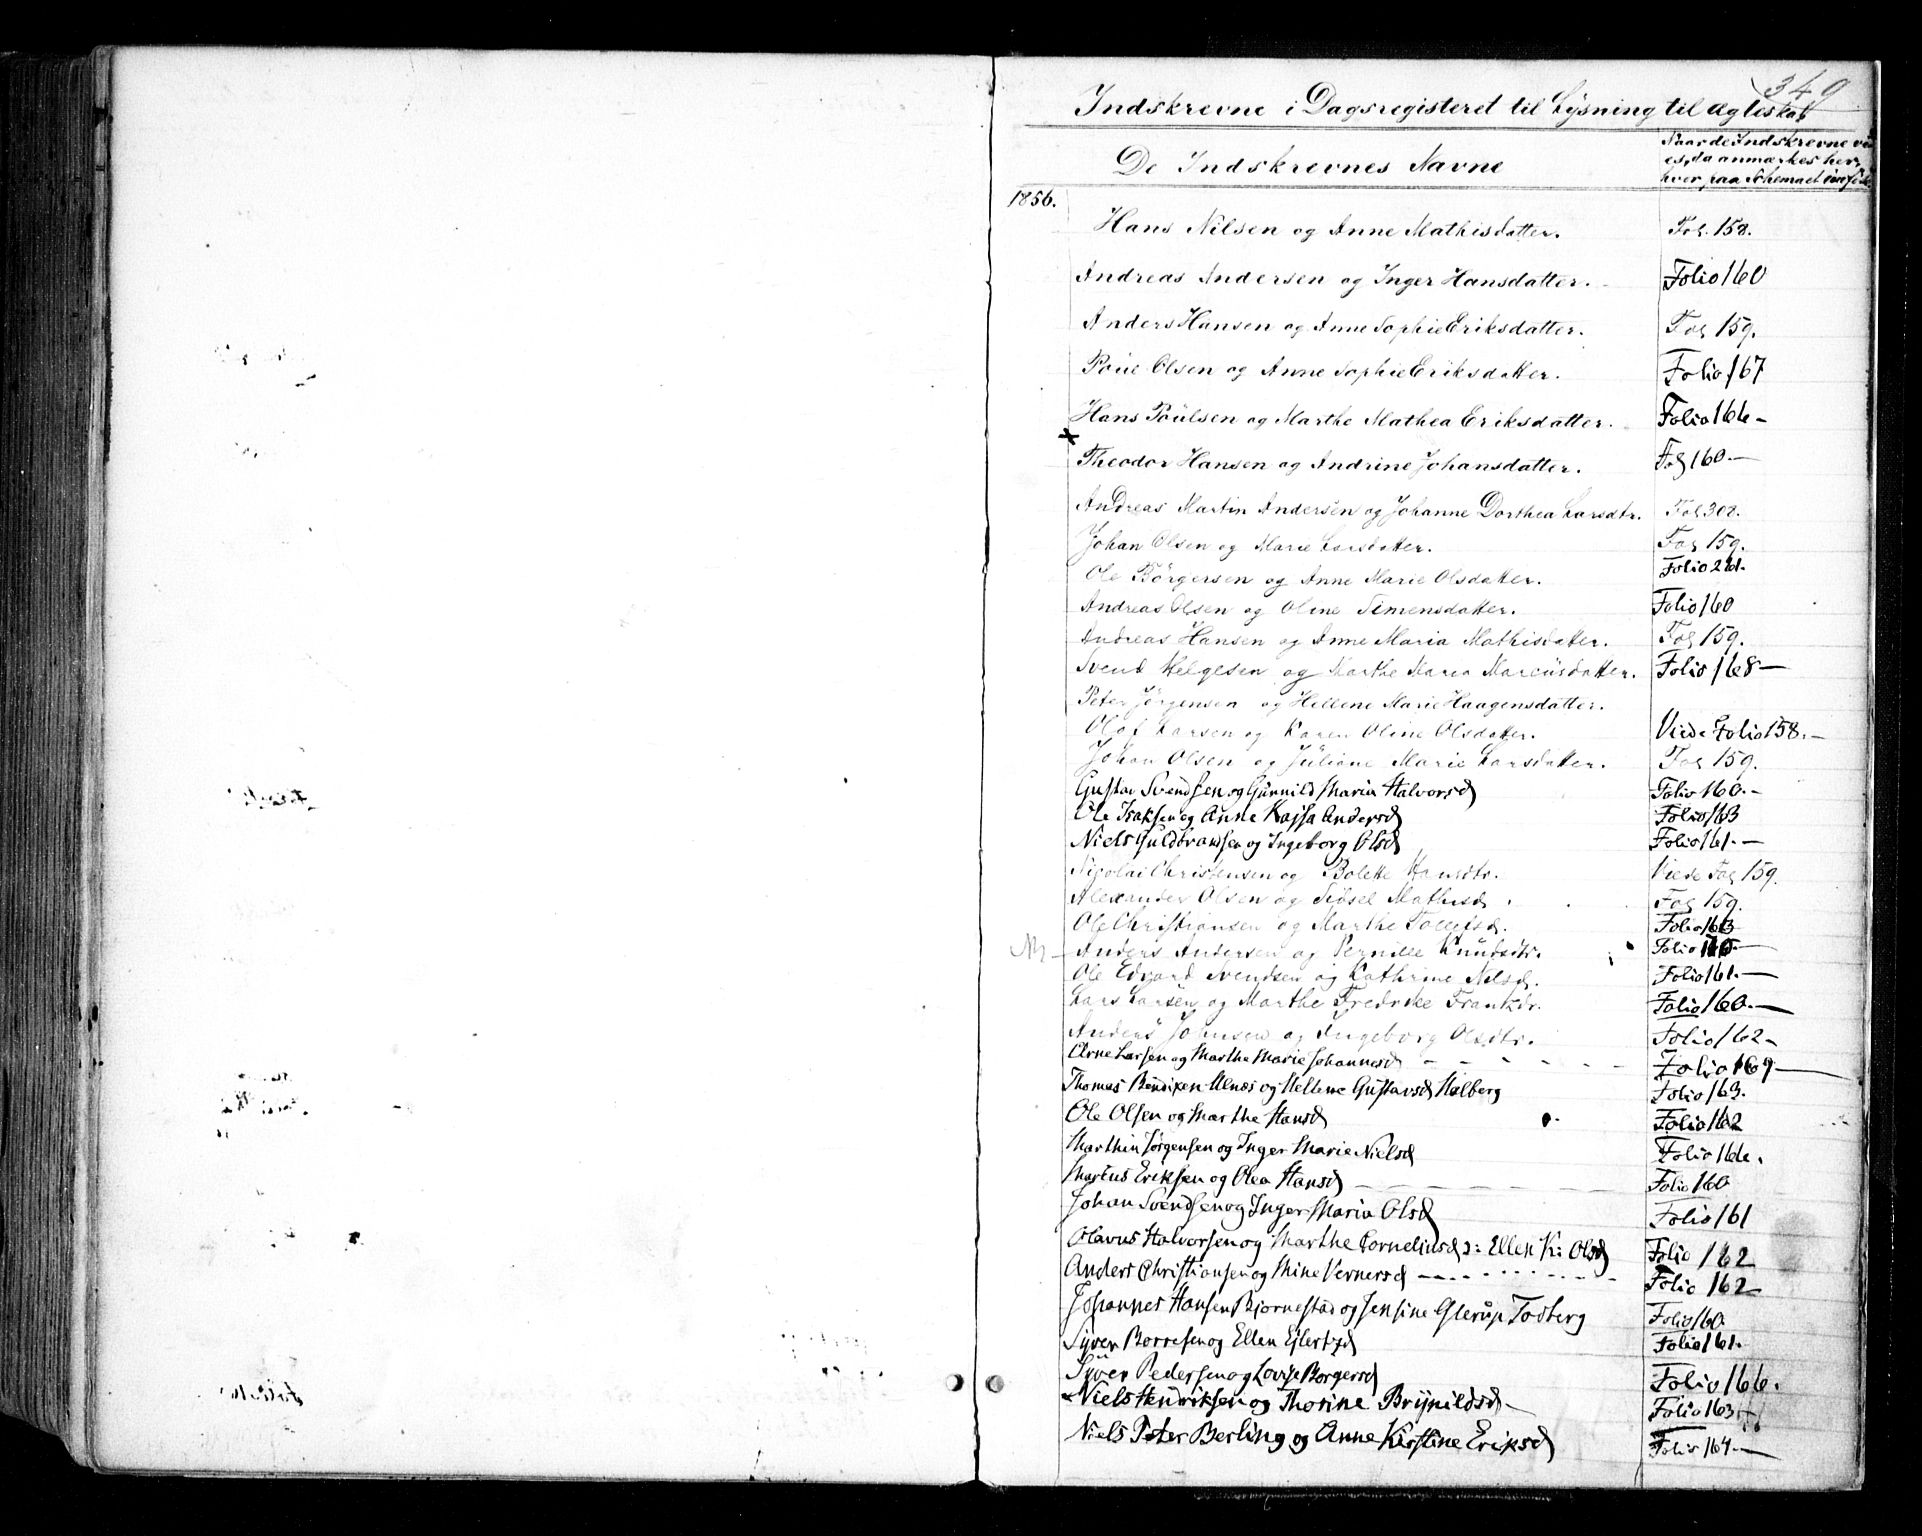 349
Indskrevne i Dagsregisteret til Lysning til Ægteskab
De Indskrevnes Navne
Naar de Indskrevne vi
es, da anmærkes her,
hvor paa Schemaet
1856.
Hans Nilsen og Anne Mathisdatter. Fol. 158.
Andreas Andersen og Inger Hansdatter. Folio 160
Anders Hansen og Anne Sophie Eriksdatter. Fol 159.
Poul Olsen og Anne Sophie Eriksdatter. Folio 167
Hans Poulsen og Marthe Mathea Eriksdatter. Folio 166 -
x
Theodor Hansen og Andrine Johansdatter. Fol 160. —
Andreas Martin Andersen og Johanne Dorthea Larsdtr. Fol 308.
Johan Olsen og Marie Larsdatter. Fol 159.
Ole Börgersen og Anne Marie Olsdatter. Folio
Andreas Olsen og Oline Simensdatter. Folio 160
Andreas Hansen og Anne Maria Mathisdatter. Fol 159.
Svend Helgesen og Marthe Maria Marcusdatter. Folio 168 —
Peter Jörgensen og Hellene Marie Haagensdatter.
Olaf Larsen og Karen Oline Olsdatter. Viede Folio 158. —
Johan Olsen og Juliane Marie Larsdatter. Fol 159.
Gustav Svendsen og Gunnild Maria Halvorsd Folio 160. -
Ole Isaksen og Anne Kajsa Andersd Folio 163
Niels Guldbrandsen og Ingeborg Olsd Folio 161. —
Nicolai Christensen og Bolette Hansdtr. Viede Fol 159.
Alexander Olsen og Sidsel Mathisd. Fol 159.
Ole Christiansen og Marthe Tollefsd. Folio 163
NB — Anders Andersen og Pernille Knudsdtr. Folio
Ole Edvard Svendsen og Kathrine Nilsd. Folio 161. —
Lars Larsen og Marthe Fredrike Frantzdr. Folio 160. —
Anders Johnsen og Ingeborg Olsdtr. Folio 162 -
Arne Larsen og Marthe Marie Johannesd Folio 169 —
Thomas Bendixen Ulnæs og Hellene Gustavsd Halberg Folio 163.
Ole Olsen og Marthe Hansd Folio 162
Marthin Jörgensen og Inger Marie Nielsd Folio 166.
Marius Eriksen og Olea Hansd Folio 160
Johan Svendsen og Inger Maria Olsd Folio 161
Olavus Halvorsen og Marthe Corneliusd ɔ: Ellen K: Olsd Folio 162
Anders Christiansen og Mine Vernersd Folio 162
Johannes Hansen Bjornestad og Jensine Glerup Todberg Folio 160
Syver Borresen og Ellen Ejlertzd Folio 161.
Syver Pedersen og Lovise Borgersd Folio 166.
Niels Hendriksen og Thorine Brynildsd — Folio 163
Niels Peter Berling og Anne Kirstine Eriksd Folio 164. —